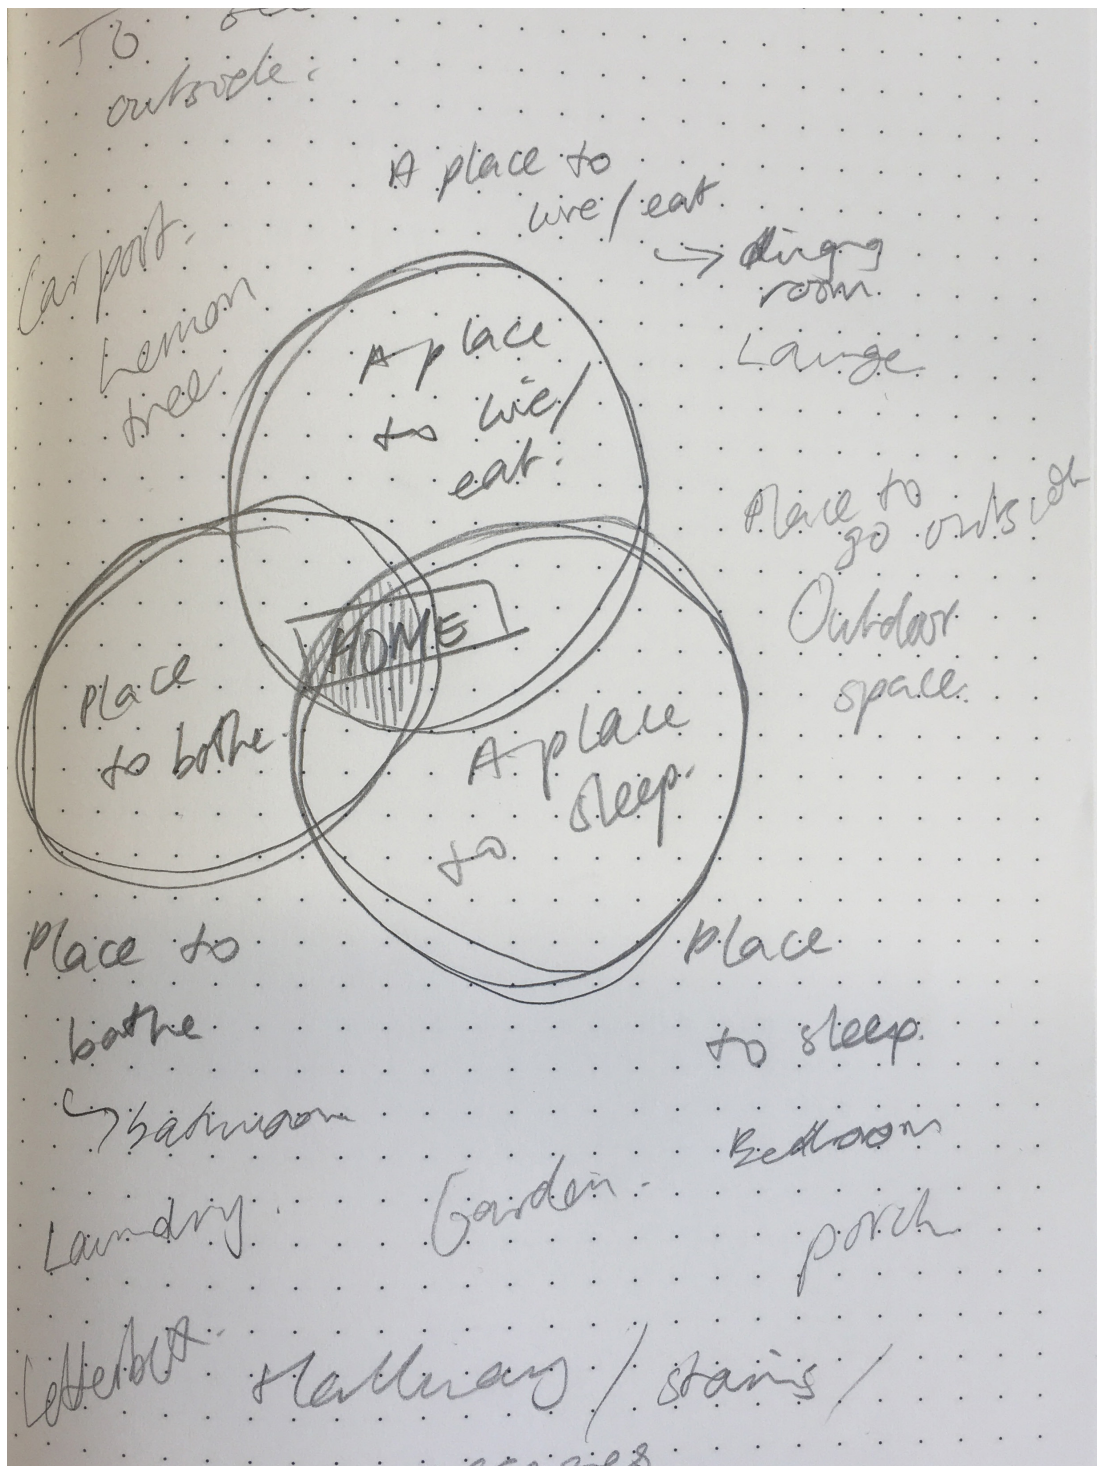 To
outside.
A place to
live/eat
→ dining
room
Lounge
Carport.
Lemon
tree.
A place
to live/
eat.
Place to
go outside
Outdoor
space.
HOME
Place
to bathe.
A place
to sleep.
Place to
bathe
↳ bathroom
Laundry.
Place
to sleep.
Bedroom
Garden.
porch
Letterbox.
Hallway / stairs /